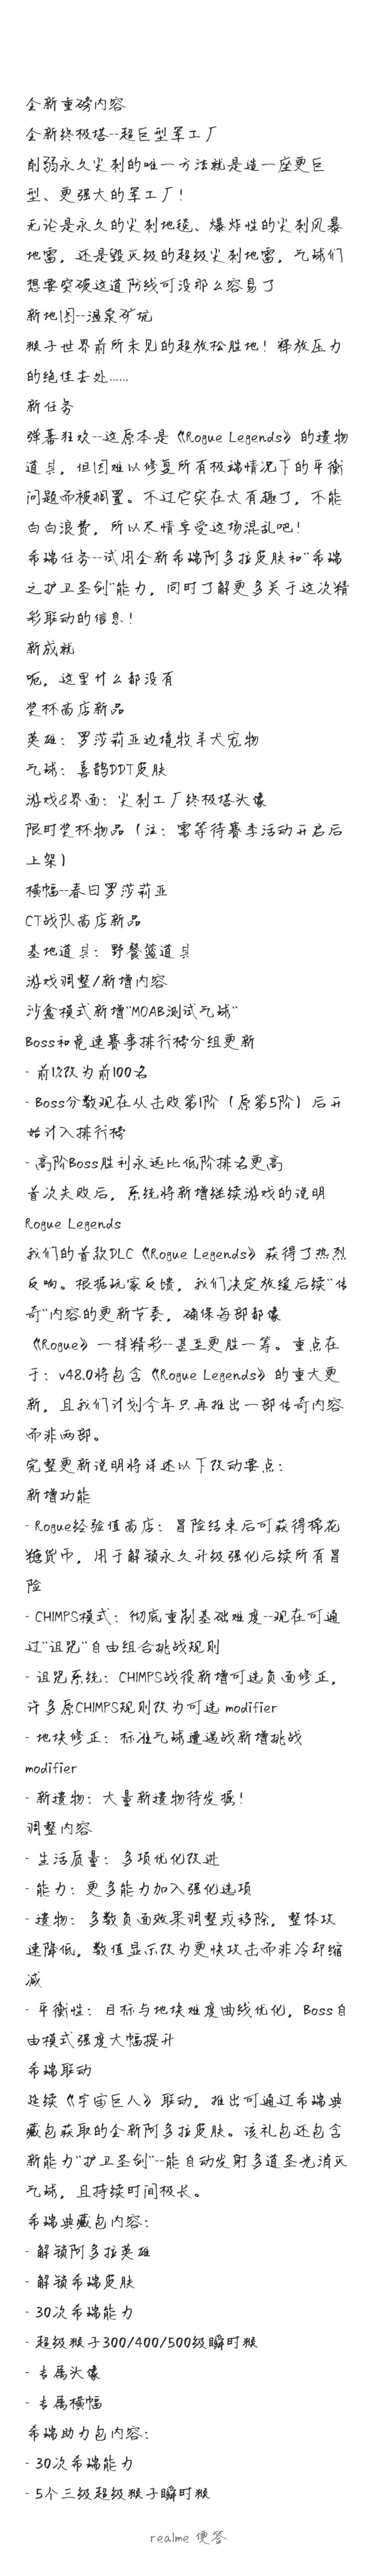 全新重磅内容
全新终极塔--超巨型军工厂
削弱永久尖刺的唯一方法就是造一座更巨
型、更强大的军工厂！
无论是永久的尖刺地毯、爆炸性的尖刺风暴
地雷，还是毁灭级的超级尖刺地雷，气球们
想要突破这道防线可没那么容易了
新地图--温泉矿坑
猴子世界前所未见的超放松胜地！释放压力
的绝佳去处……
新任务
弹幕狂欢--这原本是《Rogue Legends》的遗物
道具，但因难以修复所有极端情况下的平衡
问题而被搁置。不过它实在太有趣了，不能
白白浪费，所以尽情享受这场混乱吧！
希瑞任务--试用全新希瑞阿多拉皮肤和"希瑞
之护卫圣剑"能力，同时了解更多关于这次精
彩联动的信息！
新成就
呃，这里什么都没有
奖杯商店新品
英雄：罗莎莉亚边境牧羊犬宠物
气球：喜鹊DDT皮肤
游戏&界面：尖刺工厂终极塔头像
限时奖杯物品（注：需等待赛季活动开启后
上架）
横幅--春日罗莎莉亚
CT战队商店新品
基地道具：野餐篮道具
游戏调整/新增内容
沙盒模式新增"MOAB测试气球"
Boss和竞速赛事排行榜分组更新
- 前1%改为前100名
- Boss分数现在从击败第1阶（原第5阶）后开
始计入排行榜
- 高阶Boss胜利永远比低阶排名更高
首次失败后，系统将新增继续游戏的说明
Rogue Legends
我们的首款DLC《Rogue Legends》获得了热烈
反响。根据玩家反馈，我们决定放缓后续"传
奇"内容的更新节奏，确保每部都像
《Rogue》一样精彩--甚至更胜一筹。重点在
于：v48.0将包含《Rogue Legends》的重大更
新，且我们计划今年只再推出一部传奇内容
而非两部。
完整更新说明将详述以下改动要点：
新增功能
- Rogue经验值商店：冒险结束后可获得棉花
糖货币，用于解锁永久升级强化后续所有冒
险
- CHIMPS模式：彻底重制基础难度--现在可通
过"诅咒"自由组合挑战规则
- 诅咒系统：CHIMPS战役新增可选负面修正，
许多原CHIMPS规则改为可选 modifier
- 地块修正：标准气球遭遇战新增挑战
modifier
- 新遗物：大量新遗物待发掘！
调整内容
- 生活质量：多项优化改进
- 能力：更多能力加入强化选项
- 遗物：多数负面效果调整或移除，整体攻
速降低，数值显示改为更快攻击而非冷却缩
减
- 平衡性：目标与地块难度曲线优化，Boss自
由模式强度大幅提升
希瑞联动
延续《宇宙巨人》联动，推出可通过希瑞典
藏包获取的全新阿多拉皮肤。该礼包还包含
新能力"护卫圣剑"--能自动发射多道圣光消灭
气球，且持续时间极长。
希瑞典藏包内容：
- 解锁阿多拉英雄
- 解锁希瑞皮肤
- 30次希瑞能力
- 超级猴子300/400/500级瞬时猴
- 专属头像
- 专属横幅
希瑞助力包内容：
- 30次希瑞能力
- 5个三级超级猴子瞬时猴
realme 便签